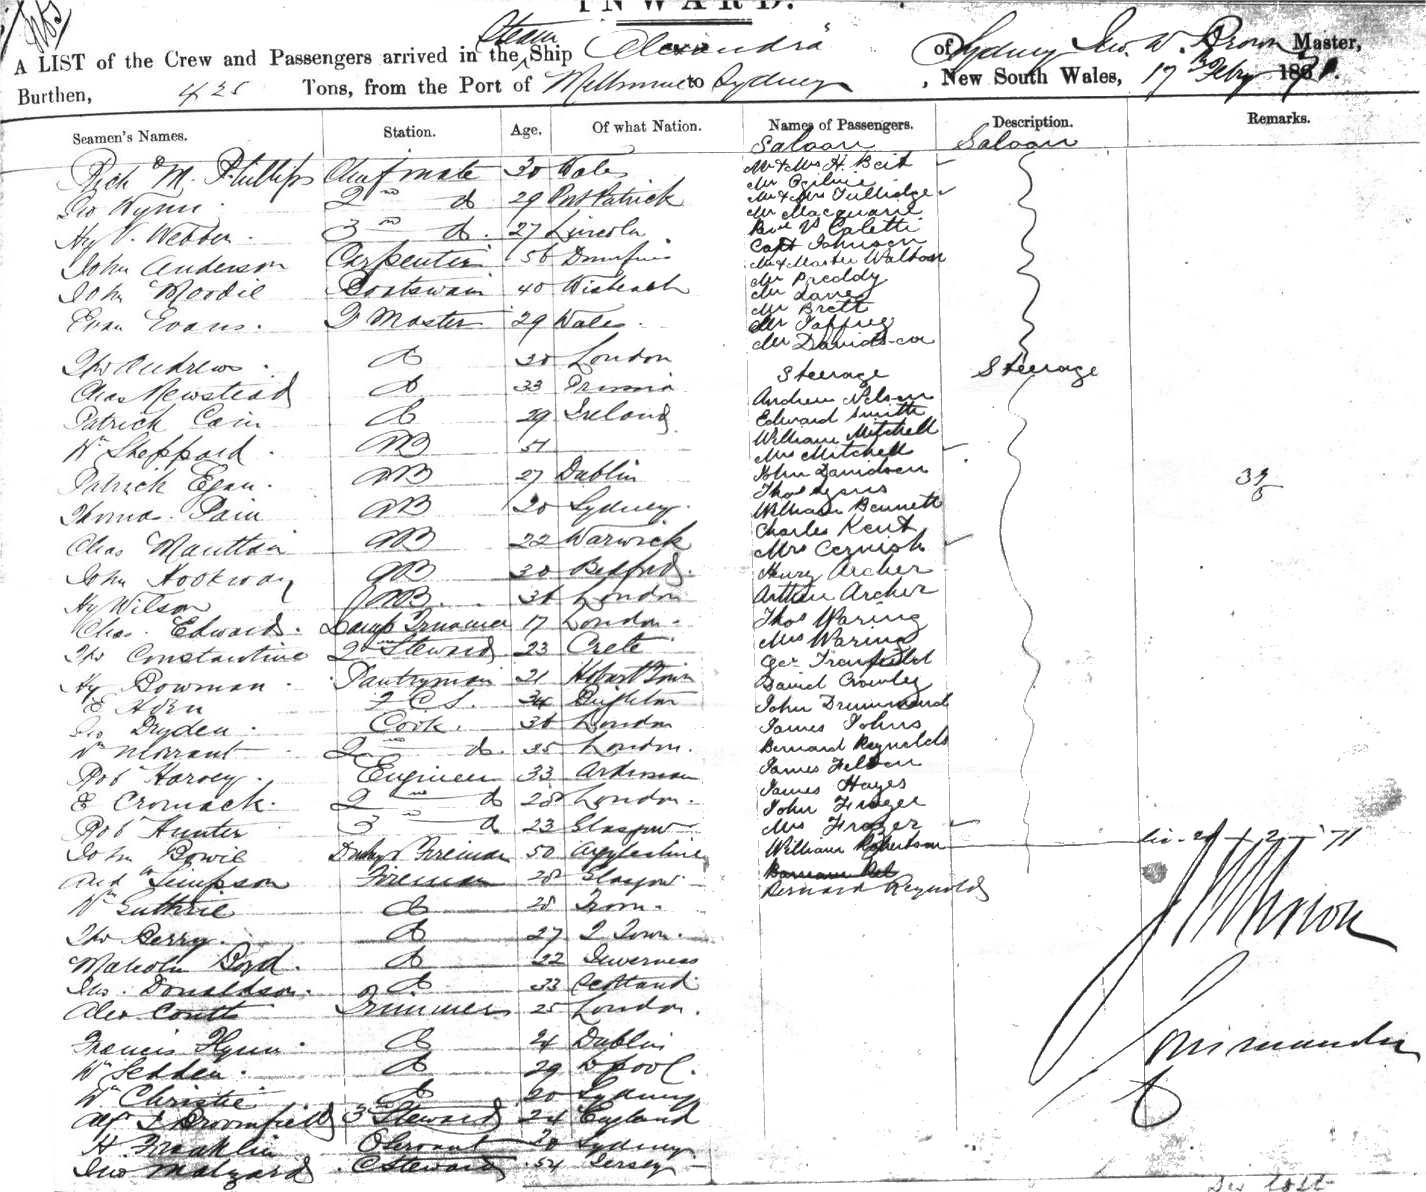 INWARD.
A LIST of the Crew and Passengers arrived in the Steam Ship "Alexandra" of Sydney Jno. W. Brown Master,
Burthen, 425 Tons, from the Port of Melbourne to Sydney, New South Wales, 17 Feby 1871.
Seamen's Names. Station. Age. Of what Nation. Names of Passengers. Description. Remarks.
Saloon Saloon
Richd M. Phillips Chief mate 30 Wales
Geo Wynn. 2nd do 29 Port Patrick
Hy V. Webber. 3rd do. 27 Lincoln
John Anderson Carpenter 56 Dumfries
John Moodie Boatswain 40 Wisbeach
Evan Evans. Q Master 29 Wales.
Thos Andrews. do 30 London
Chas Newstead do 33 Prussia
Patrick Cain do 29 Ireland
Wm Sheppard. AB 51
Patrick Egan. AB 27 Dublin
Thomas Pain AB 20 Sydney.
Chas AB 22 Warwick
John Hookway AB 30 Bedford.
Hy Wilson AB. 36 London
Chas. Edwards. Lamp Trimmer 17 London.
Thos Constantine 2nd Steward 23 Crete
Hy Bowman. Pantryman 21 Hobart Town
E Horn F C S. 34 Brighton
Geo Dryden. Cook. 36 London
Wm Morrant 2nd do. 35 London.
Robt Harvey. Engineer 33
E Cromack. 2nd do 28 London.
Robt Hunter 3rd do 23 Glasgow
John Bowie Donkey Fireman 50 Argyleshire
And Simpson Fireman 28 Glasgow
Wm Guthrie do 28 Troon.
Thos Berry. do 27 Q Town.
Malcolm Boyd. do 22 Inverness
Jno. Donaldson. do. 33 Scotland
Alex Coutts Trimmer 25 London.
Francis Flynn. do 24 Dublin
Wm Sedden. do 29 L'pool.
Wm Christie do 20 Sydney
Alf J Broomfield 3rd Steward 24 England
H. Franklin Servant 20 Sydney
Jno Malzard. Steward 54 Jersey
Mr & Mrs H. Beit
Mr Ogilvie
Mr & Mrs Tullidge
Mr Macquarie
Rev V Galetti
Capt Johnson
Mr & Master Watson
Mr Preddy
Mr Davies
Mr Brett
Mr Jaffrey
Mr Davidson
Steerage Steerage
Andrew Nelson
Edward Smith
William Mitchell
Mrs Mitchell
John Davidson
Thos Lyons
William Bennett
Charles Kent
Mrs Cornish
Henry Archer
Arthur Archer
Thos Waring
Mrs Waring
Geo
David Crowley
John Drummond
James Johns
Bernard Reynolds
James Feldon
James Hayes
John Frazer
Mrs Frazer
William Robertson
Bernard Reynolds
J W Brown
Commander